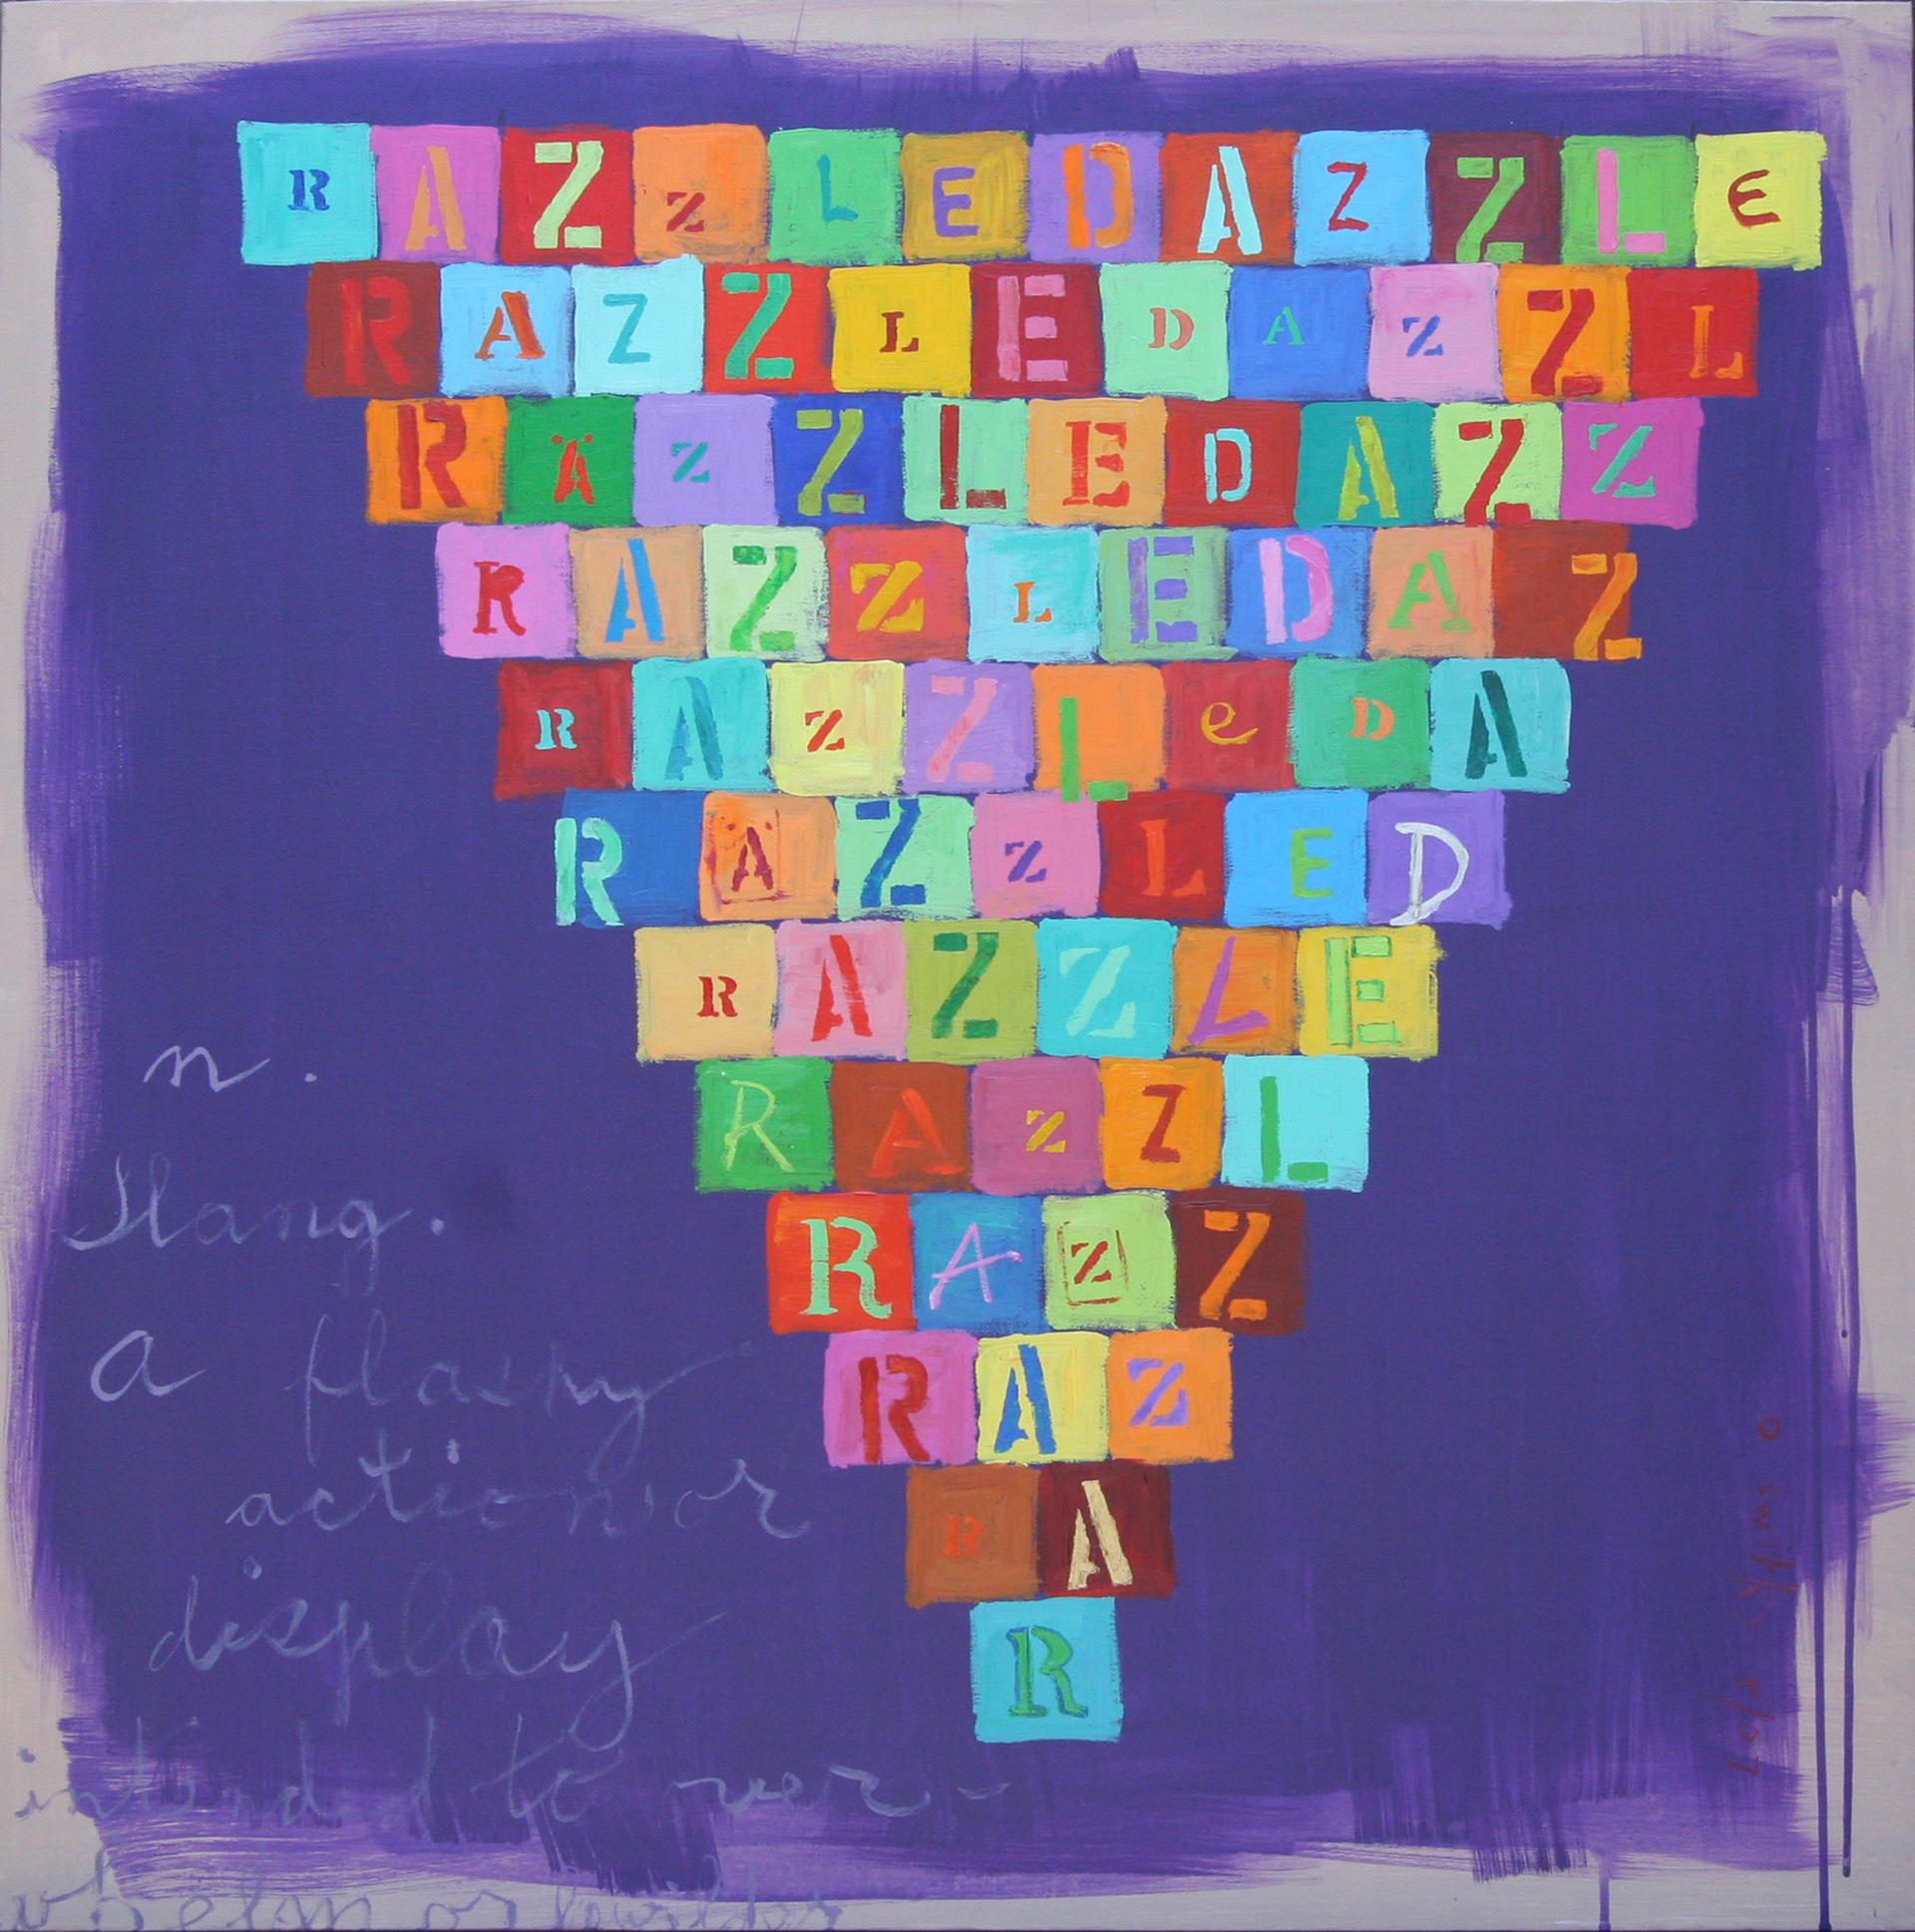 RAZzLEDAZZLE
RAZZLEDAZZL
RÄZZLEDAZZ
RAZZLEDAZ
RAZZLeDA
RÄZzLED
RAZZLE
RAzZL
RAZZ
RAZ
RA
R
n.
Slang.
a flashy
action or
display
intended to over-
whelm or bewilder